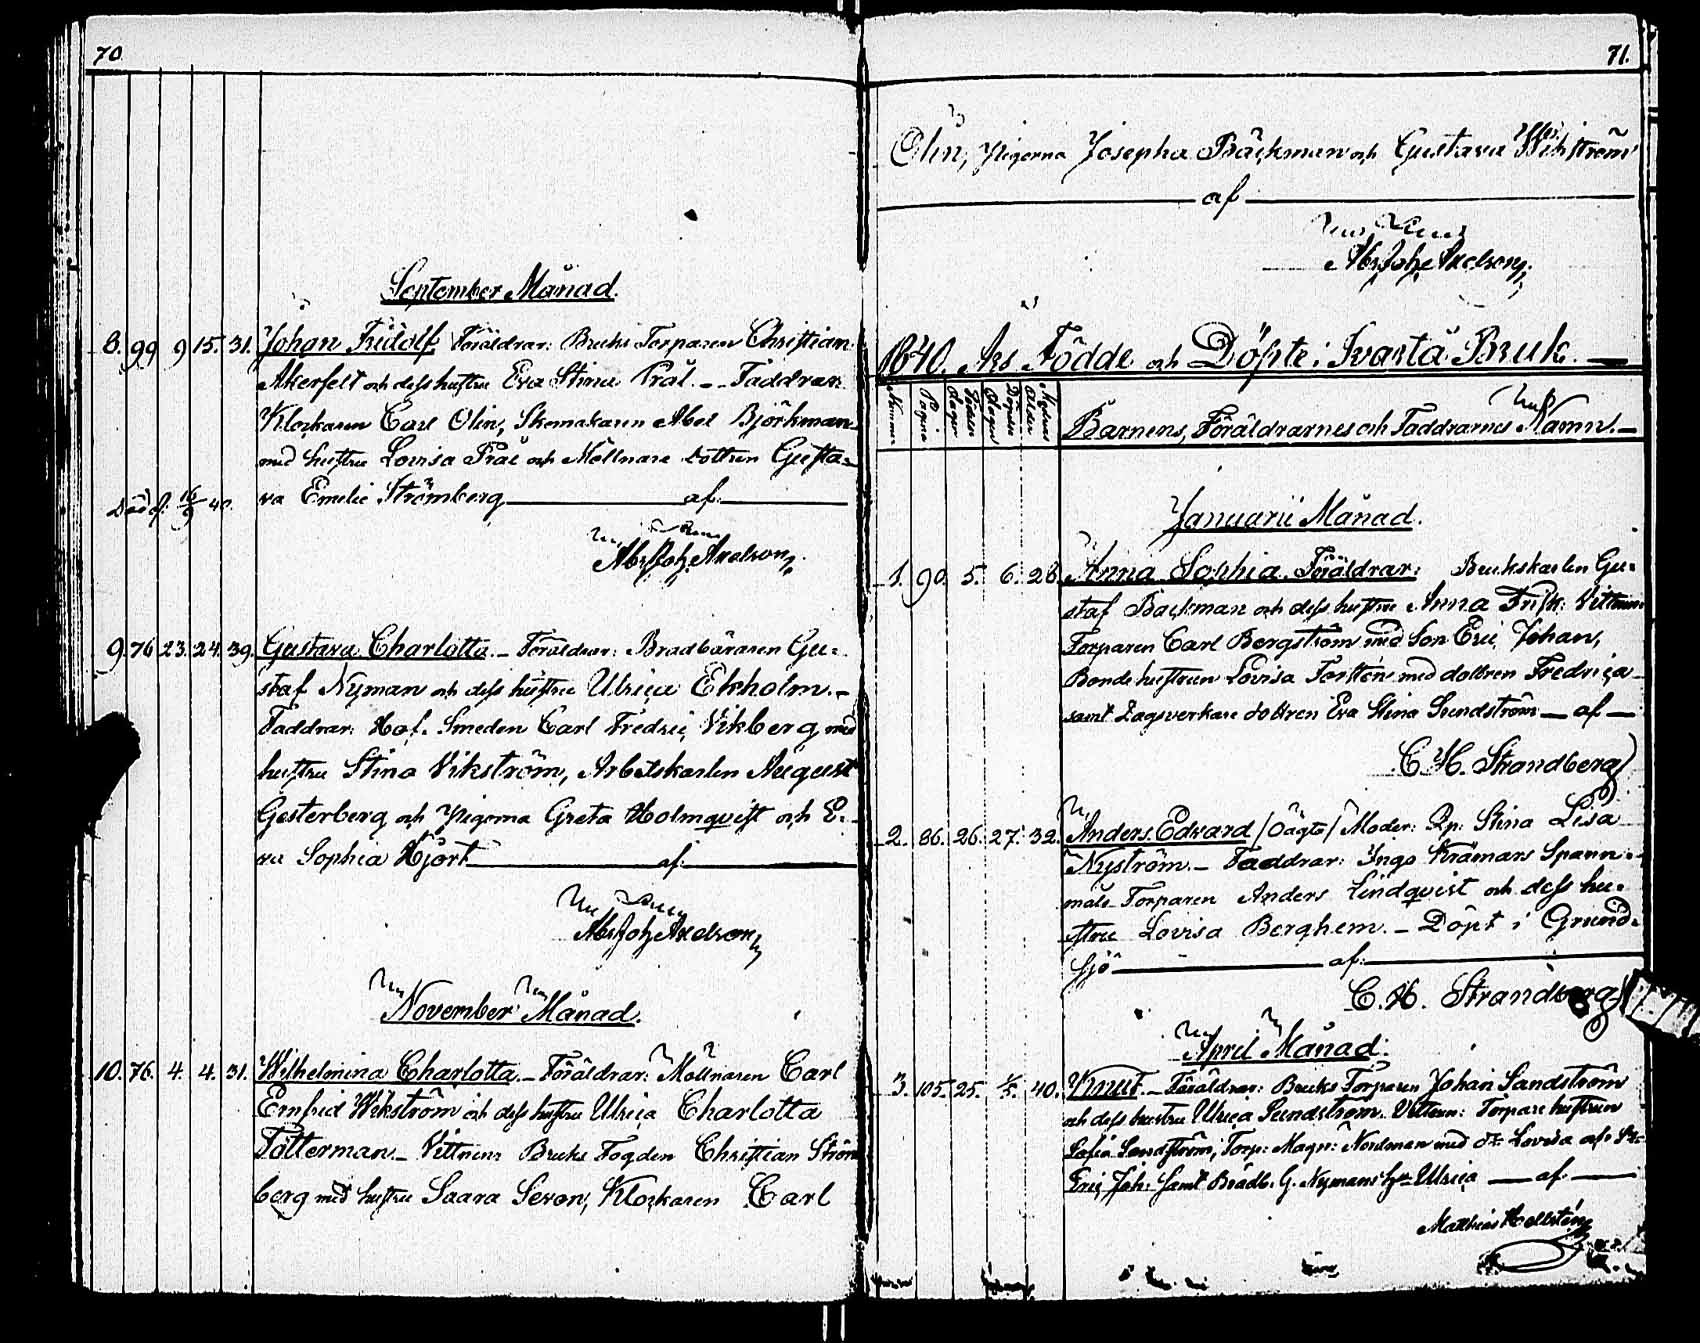 70.
September Månad.
8. 99 9 15. 31. Johan Fridolf. Föräldrar: Bruks Torparen Christian
Åkerfelt och dess hustru Eva Stina Prål. — Faddrar:
Klockaren Carl Olin, Skomakaren Abel Björkman
med hustru Lovisa Prål och Möllnare dottren Gusta-
va Emelie Strömberg — af —
Död d. 16/9 40.
Abr. Joh. Axelson.
9. 76 23. 24. 39. Gustava Charlotta. — Föräldrar: Brädbäraren Gu-
staf Nyman och dess hustru Ulrica Ekholm. —
Faddrar: Hof-Smeden Carl Fredric Vikberg med
hustru Stina Vikström, Arbetskarlen August
Gesterberg och Pigorna Greta Holmqvist och E-
va Sophia Hjort — af —
Abr. Joh. Axelson
November Månad.
10. 76. 4. 4. 31. Wilhelmina Charlotta. — Föräldrar: Möllnaren Carl
Emfrid Wikström och dess hustru Ulrica Charlotta
Tötterman. — Vittnen: Bruks Fogden Christian Ström
berg med hustru Saara Seron, Klockaren Carl
71.
Olin, Pigorna Josepha Bäckman och Gustava Wikström
— af —
Abr. Joh. Axelson.
1840. Års Födde och Döpte i Svartå Bruk. —
Nummer Pagina Dagen Födelse Dagen Döpelse Ålder Modrens
Barnens, Föräldrarnes och Faddrarnes Namn. —
Januarii Månad.
1. 90. 5. 6. 28. Anna Sophia. Föräldrar: Brukskarlen Gu-
staf Backman och dess hustru Anna Frisk: Vittnen
Torparen Carl Bergström med Son Eric Johan,
Bonde hustrun Lovisa Torstén med dottren Fredrica
samt Sagsverkare dottren Eva Stina Sundström — af —
C. H. Strandberg
2. 86. 26. 27. 32. Anders Edvard /Oägta/ Moder: Qp: Stina Lisa
Nyström. — Faddrar: Ingo Krämars Spann-
måls Torparen Anders Lindqvist och dess hu-
stru Lovisa Berghem. — Döpt i Grund-
sjö — af —
C. H. Strandberg
April Månad.
3. 105. 25. 1/5. 40. Knut. — Föräldrar: Bruks Torparen Johan Sandström
och dess hustru Ulrica Sundström. Vittnen: Torpare hustrun
Sofia Sandström, Torp: Magn: Nordman med dr Lovisa
Eric Joh: Samt Brädb. G. Nymans hu Ulrica — af —
Matthias Hellstén